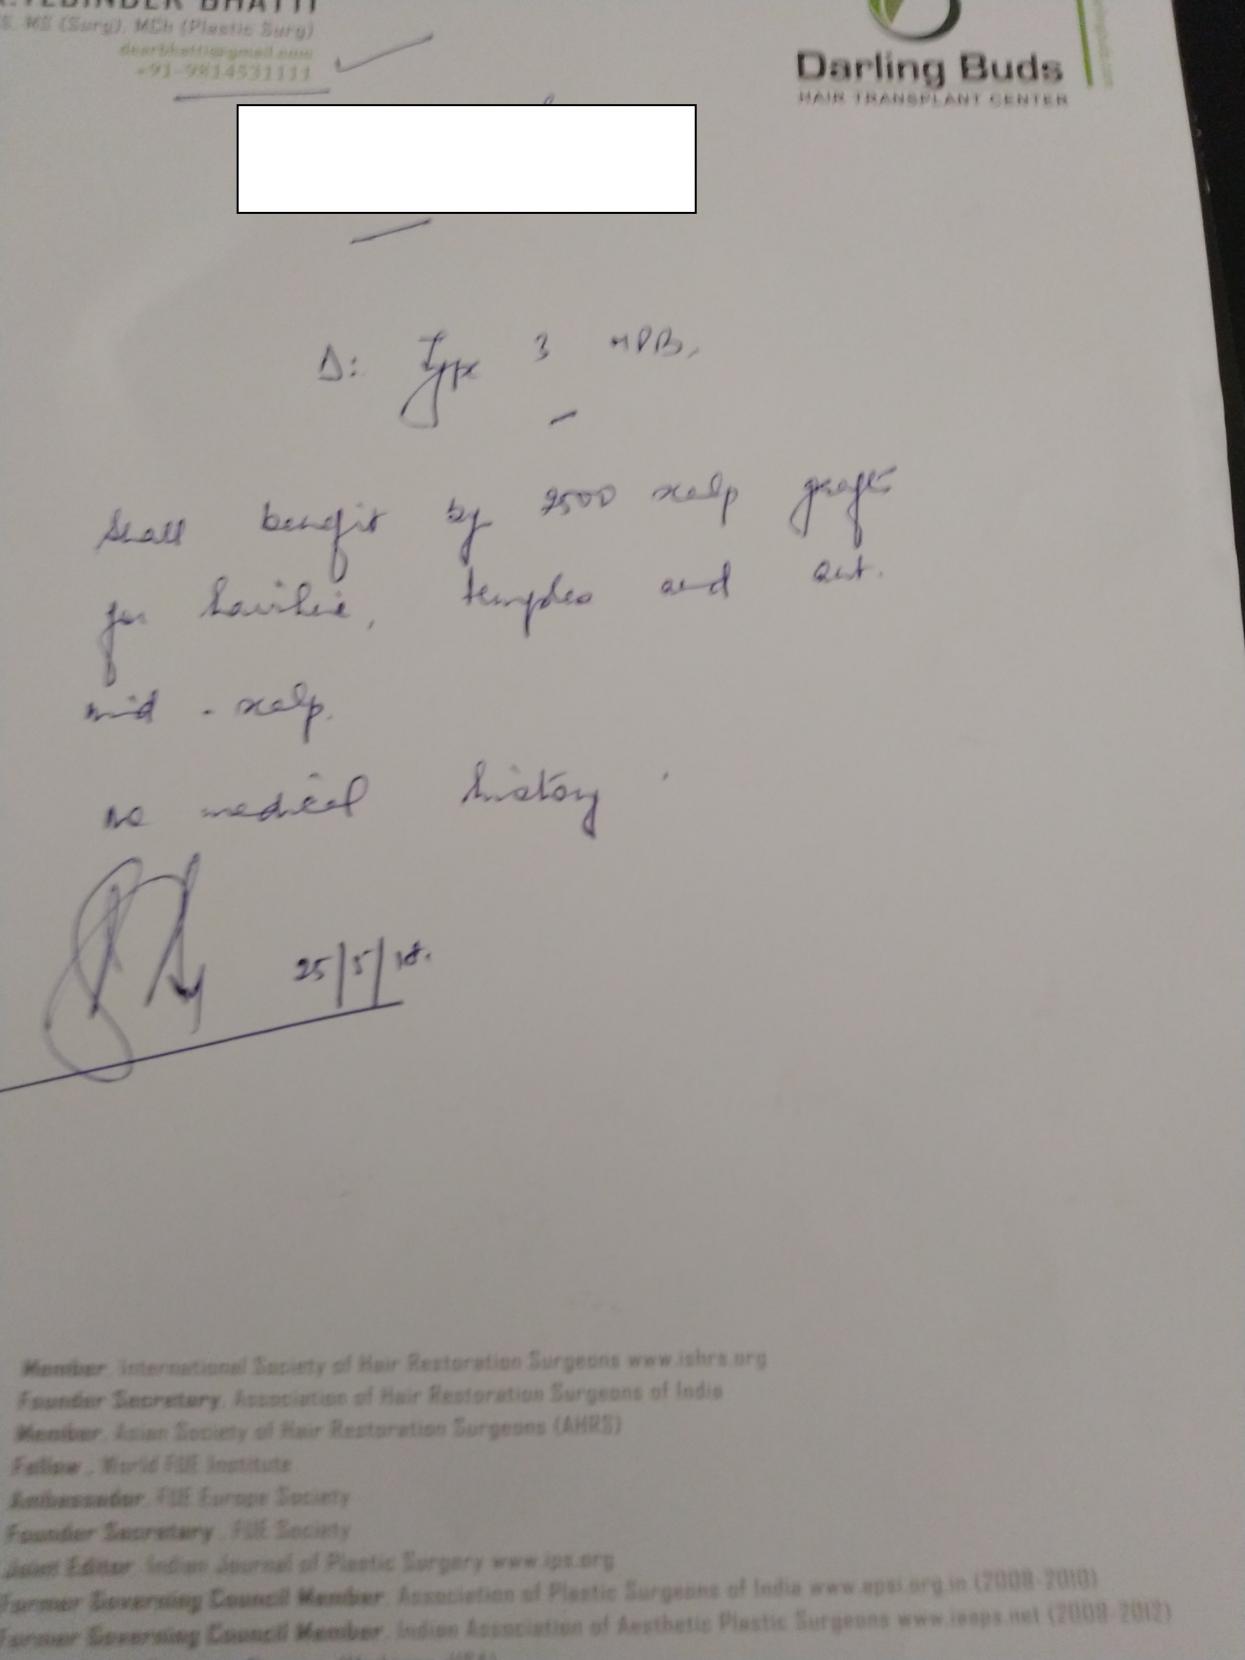 TEJINDER BHATTI
MS (Surg), MCh (Plastic Surg)
+91-9814531111
Darling Buds
HAIR TRANSPLANT CENTER
Δ: Type 3 MPB,
Shall benefit by 2500 scalp grafts
for hairline, temples and ant.
mid - scalp.
no medical history
25/5/18.
Member, International Society of Hair Restoration Surgeons www.ishrs.org
Founder Secretary, Association of Hair Restoration Surgeons of India
Member, Asian Society of Hair Restoration Surgeons (AHRS)
Fellow, World FUE Institute
Ambassador, FUE Europe Society
Founder Secretary, FUE Society
Joint Editor, Indian Journal of Plastic Surgery www.ips.org
Former Governing Council Member, Association of Plastic Surgeons of India www.apsi.org.in (2008-2010)
Former Governing Council Member, Indian Association of Aesthetic Plastic Surgeons www.ieaps.net (2008-2012)